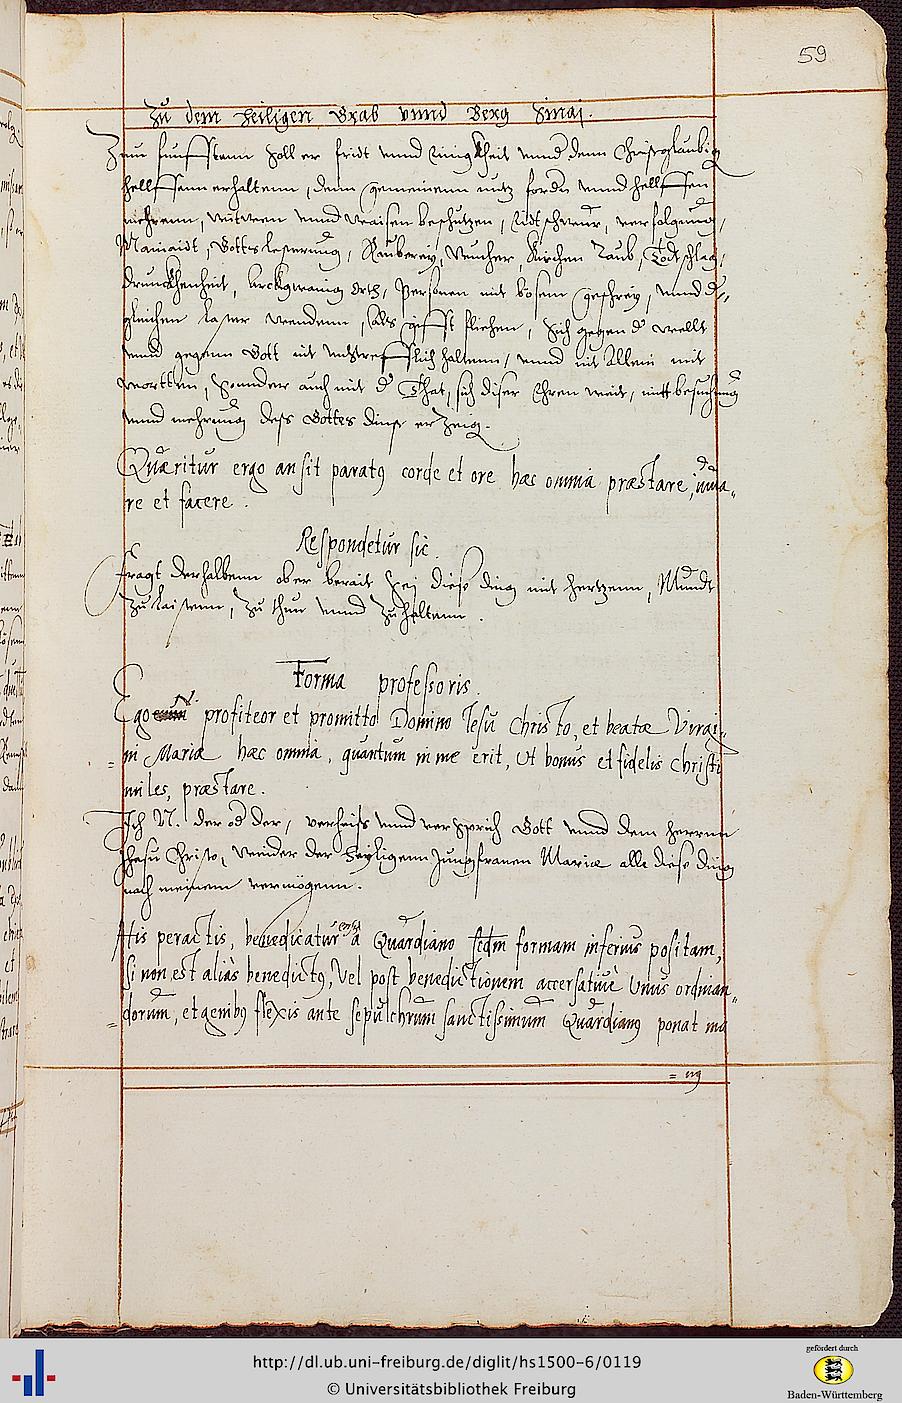 59
Zu dem heiligen Grab vnnd Berg Sinaj.
Zum funfftenn soll er fridt vnnd Ainigkheit vnnd denn Christglaubig
helffenn erhaltenn, denn gemeinenn nutz fordn vnnd helffen
mehrenn, wittwen vnnd waisen beschutzen,
Mainaidt, Gottslesterung, Rauberey, Wucher, Kirchen Raub, Todtschlag,
drunckhenheit, Arckgwanig Orth, Personen mit bösem geschrey, vnnd d
gleichen laster meidenn, als gifft fliehen, sich gegen d wellt
vnnd gegenn Gott vnstrefflich haltenn, vnnd nit Allein mit
wortten, Sonnder auch mit d That, sich diser Ehren mit besuchung
vnnd mehrung dess Gottes dinst erzeig.
Quæritur ergo an sit paratus corde et ore hæc omnia præstare, iura=
re et facere.
Respondetur sic
Fragt derhalbenn ob er berait sey diese ding mit hertzenn, Mundt
Zu laistenn, zu thun vnnd zu haltenn.
Forma professoris.
Ego N. profiteor et promitto Domino Iesu Christo, et beatæ Virgi=
=ni Mariæ hæc omnia, quantum in me erit, Ut bonus et fidelis Christi
miles, præstare.
Ich N. der od der, verheiss vnnd versprich Gott vnnd dem herrnn
Jhesu Christo, der heyligenn Jungfrauen Mariæ alle diese ding
nach meinem vermögenn.
His peractis, benedicatur ensis à Quardiano secundum formam inferius positam,
si non est aliàs benedictus, Vel post benedictionem accersatiuè Unus ordinan=
=dorum, et genibus flexis ante sepulchrum sanctissimum Quardianus ponat ma
=nus
http://dl.ub.uni-freiburg.de/diglit/hs1500-6/0119
© Universitätsbibliothek Freiburg
gefördert durch
Baden-Württemberg